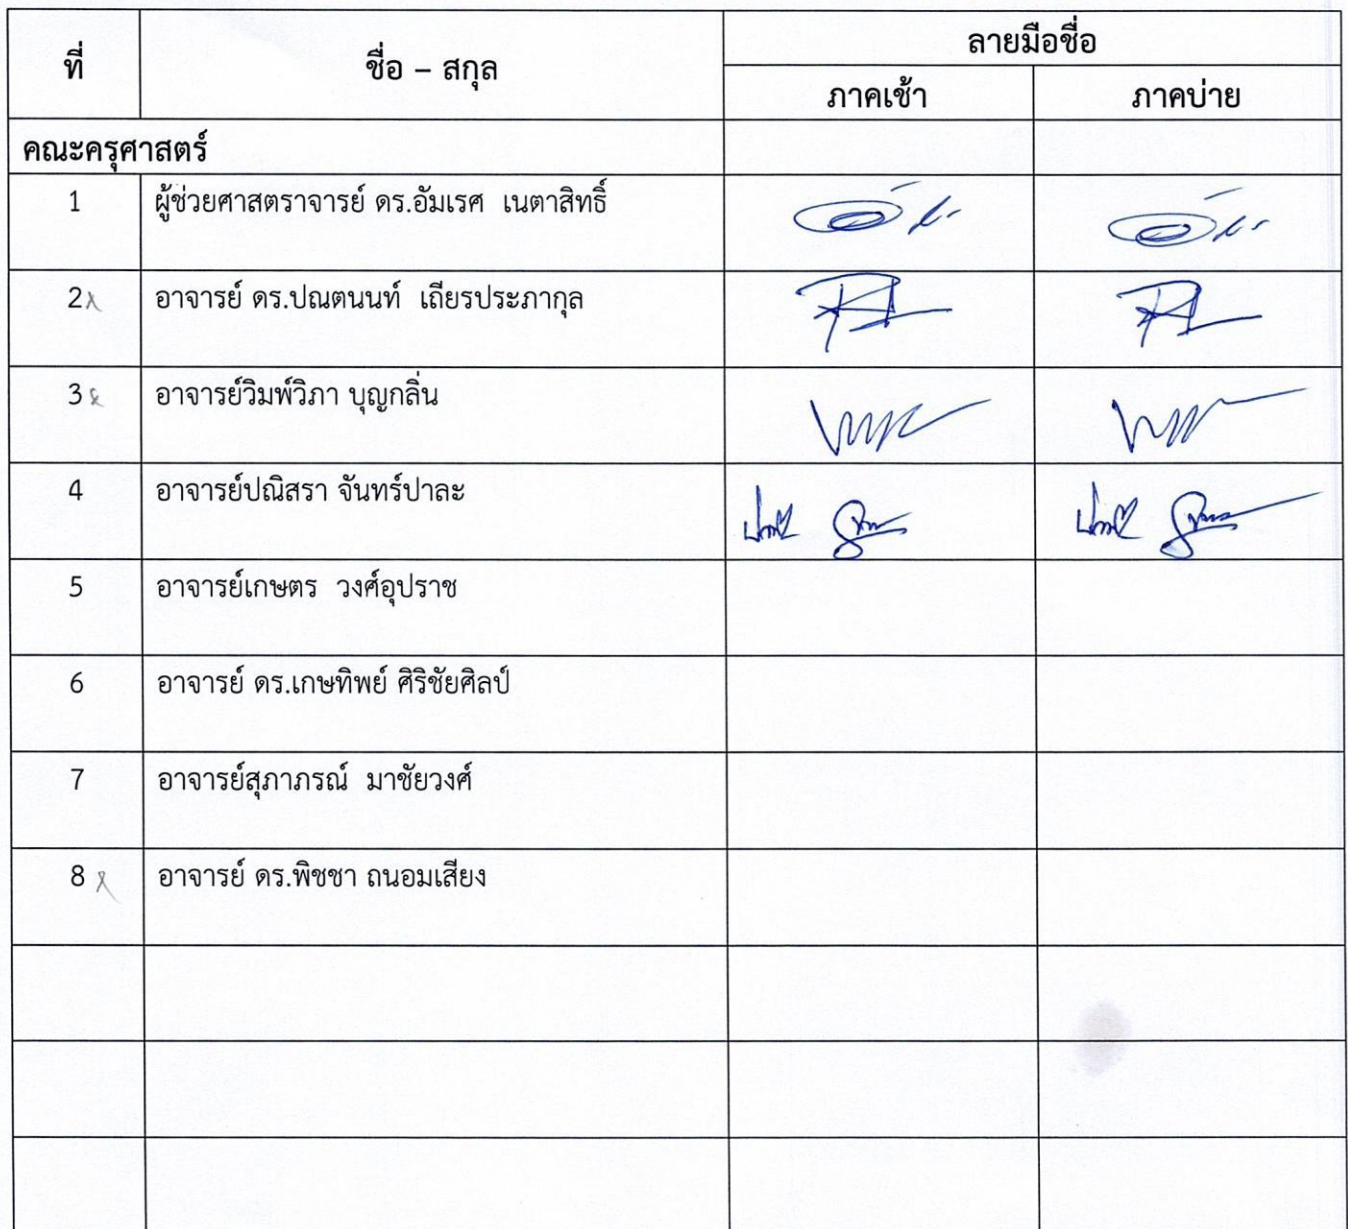 ที่ ชื่อ – สกุล ลายมือชื่อ
ภาคเช้า ภาคบ่าย
คณะครุศาสตร์
1 ผู้ช่วยศาสตราจารย์ ดร.อัมเรศ เนตาสิทธิ์
2 อาจารย์ ดร.ปณตนนท์ เถียรประภากุล
3 อาจารย์วิมพ์วิภา บุญกลิ่น
4 อาจารย์ปณิสรา จันทร์ปาละ
5 อาจารย์เกษตร วงศ์อุปราช
6 อาจารย์ ดร.เกษทิพย์ ศิริชัยศิลป์
7 อาจารย์สุภาภรณ์ มาชัยวงศ์
8 อาจารย์ ดร.พิชชา ถนอมเสียง